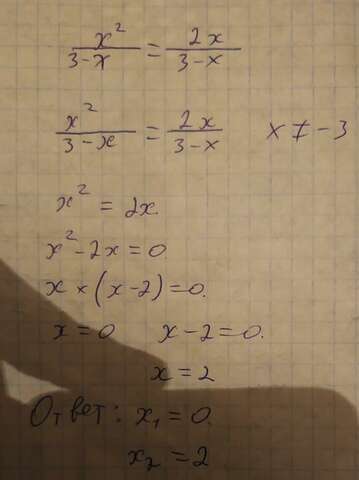 x²/(3-x) = 2x/(3-x)
x²/(3-x) = 2x/(3-x) x ≠ -3
x² = 2x.
x² - 2x = 0
x × (x-2) = 0.
x = 0 x - 2 = 0.
x = 2
Ответ: x₁ = 0.
x₂ = 2